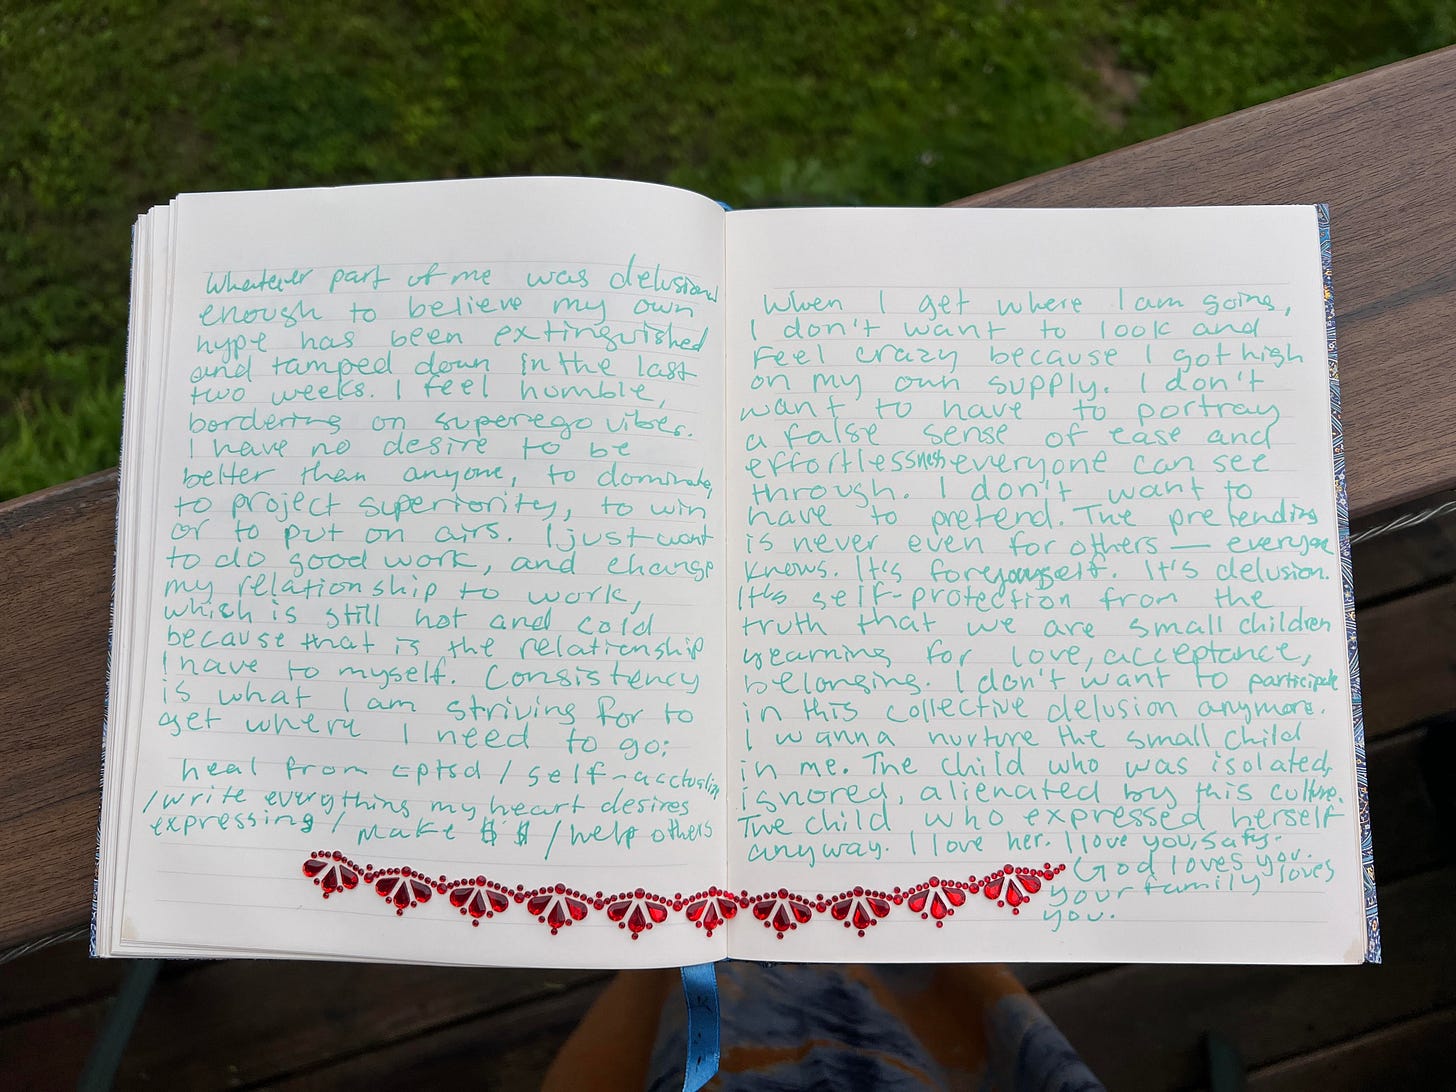 Whatever part of me was delusional
enough to believe my own
hype has been extinguished
and tamped down in the last
two weeks. I feel humble,
bordering on superego vibes.
I have no desire to be
better than anyone, to dominate,
to project superiority, to win
or to put on airs. I just want
to do good work, and change
my relationship to work,
which is still hot and cold
because that is the relationship
I have to myself. Consistency
is what I am striving for to
get where I need to go:
heal from cptsd / self-acctualize
/write everything my heart desires
expressing / make $ $ / help others
When I get where I am going,
I don't want to look and
feel crazy because I got high
on my own supply. I don't
want to have to portray
a false sense of ease and
effortlessness everyone can see
through. I don't want to
have to pretend. The pretending
is never even for others — everyone
knows. It's for yourself. It's delusion.
It's self-protection from the
truth that we are small children
yearning for love, acceptance,
belonging. I don't want to participate
in this collective delusion anymore.
I wanna nurture the small child
in me. The child who was isolated,
ignored, alienated by this culture.
The child who expressed herself
anyway. I love her. I love you,
God loves you.
your family loves
you.